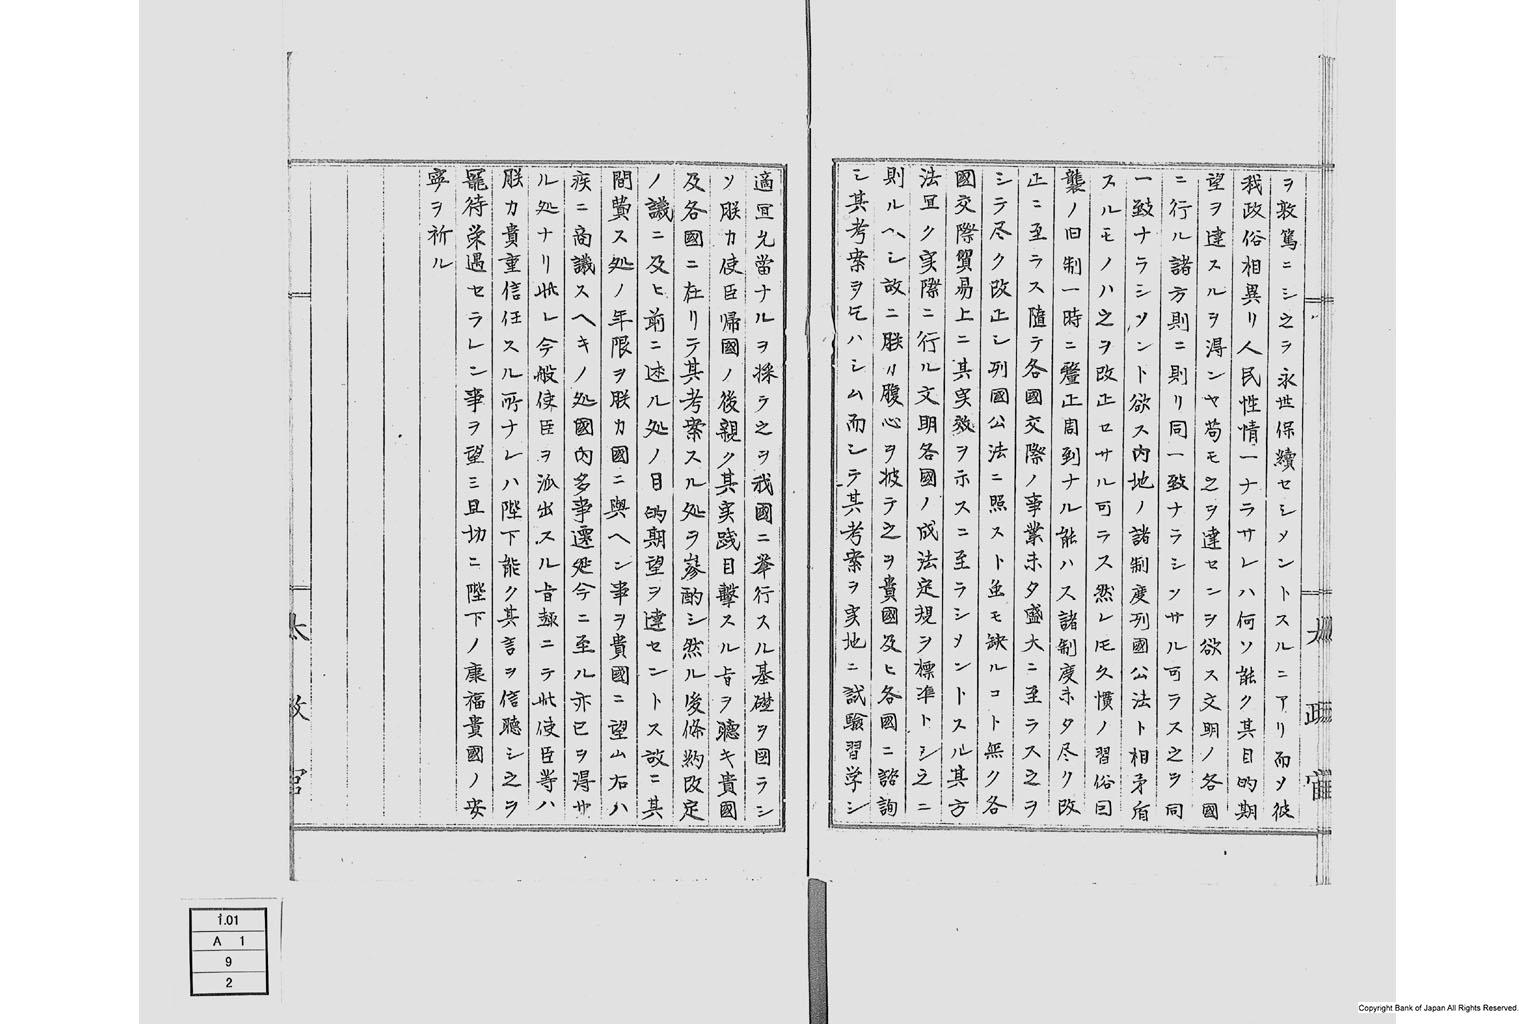 ヲ敦篤ニシ之ヲ永世保續セシメントスルニアリ而ソ彼
我政俗相異リ人民性情一ナラサレハ何ソ能ク其目的期
望ヲ達スルヲ淂ンヤ苟モ之ヲ達センヲ欲ス文明ノ各國
ニ行ル諸方則ニ則リ同一致ナラシンサル可ラス之ヲ同
一致ナラシソント欲ス内地ノ諸制度列國公法ト相矛盾
スルモノハ之ヲ改正セサル可ラス然レ𪜈久慣ノ習俗因
襲ノ旧制一時ニ釐正周到ナル能ハス諸制度未タ尽ク改
正ニ至ラス隨テ各國交際ノ事業未タ盛大ニ至ラス之ヲ
シテ尽ク改正シ列國公法ニ照スト𧈧モ缺ルコト無ク各
國交際貿易上ニ其实效ヲ示スニ至ラシメントスル其方
法冝ク实際ニ行ル文明各國ノ成法定規ヲ標準トシ之ニ
則ルヘシ故ニ朕リ腹心ヲ披テ之ヲ貴國及ヒ各國ニ諮詢
シ其考案ヲ乞ハシム而シテ其考案ヲ实地ニ試験習学シ
適冝允當ナルヲ採ラ之ヲ我國ニ舉行スル基礎ヲ図ラシ
ソ朕カ使臣帰國ノ後親ク其实踐目擊スル旨ヲ聽キ貴國
及各國ニ在リテ其考案スル処ヲ参酌シ然ル後條約改定
ノ議ニ及ヒ前ニ述ル処ノ目的期望ヲ達セントス故ニ其
間費ス処ノ年限ヲ朕カ國ニ與ヘン事ヲ貴國ニ望ム右ハ
疾ニ商議スヘキノ処國内多事遷延今ニ至ル亦已ヲ淂サ
ル処ナリ此レ今般使臣ヲ派出スル旨趣ニテ此使臣等ハ
朕カ貴重信任スル所ナレハ陛下能ク其言ヲ信聽シ之ヲ
寵待栄遇セラレン事ヲ望ミ且切ニ陛下ノ康福貴國ノ安
寧ヲ祈ル
太政官
1.01
A 1
9
2
Copyright Bank of Japan All Rights Reserved.